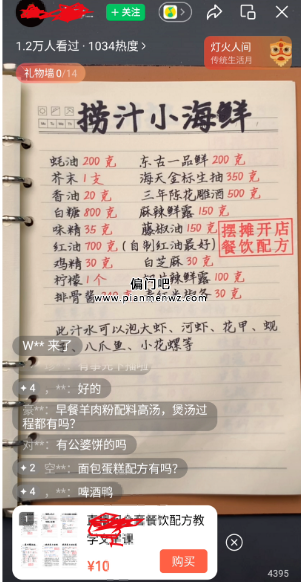 关注
1.2万人看过 · 1034热度 >
灯火人间
传统生活月
礼物墙 0/14
捞汁小海鲜
蚝油 200 克 东古一品鲜 200 克
芥末 1 支 海天金标生抽 350 克
香油 20 克 三年陈花雕酒 500 克
白糖 800 克 麻辣鲜露 150 克
味精 35 克 藤椒油 150 克
红油 700 克 (自制红油最好)
鸡精 30 克 白芝麻 30 克
柠檬 1 个 辣鲜露 100 克
排骨酱 克 30 克
摆摊开店
餐饮配方
偏门吧
www.pianmenwz.com
此汁水可以泡大虾、河虾、花甲、蚬
、八爪鱼、小花螺等
W** 来了
+4 , **: 好的
**: 早餐羊肉粉配料高汤,煲汤过
程都有吗?
对**: 有公婆饼的吗
+2 空**: 面包蛋糕配方有吗?
+4 , **: 啤酒鸭
1
餐饮配方教
学文 课
¥10
购买
4395